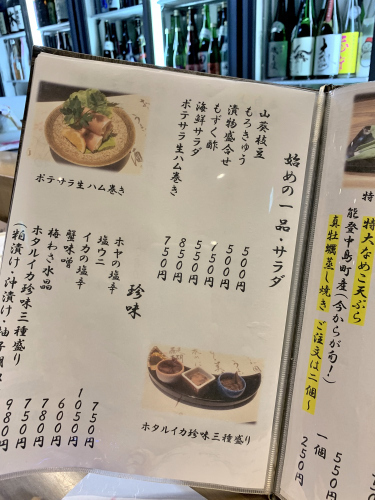 特
特大なめこ天ぷら 550円
能登中島町産(今からが旬!)
真牡蠣蒸し焼き ご注文は二個~
一個 250円
始めの一品・サラダ
山葵枝豆 500円
もろきゅう 500円
漬物盛合せ
もずく酢 550円
海鮮サラダ 850円
ポテサラ生ハム巻き 750円
ポテサラ生ハム巻き
珍味
ホヤの塩辛 750円
塩ウニ 1050円
イカの塩辛 600円
蟹味噌 780円
梅わさ水晶 750円
ホタルイカ珍味三種盛り 980円
(粕漬け・沖漬け・柚子
ホタルイカ珍味三種盛り